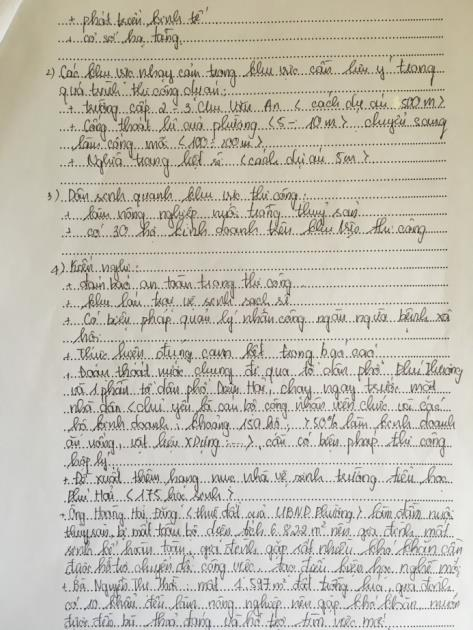 + phát triển kinh tế
+ cơ sở hạ tầng
2) Các khu vực nhạy cảm trong khu vực cần lưu ý trong
quá trình thi công dự án:
+ trường cấp 2-3 Chu Văn An < cách dự án 500m >
+ Cống thoát lũ của phường <5-10m> chuyển sang
làm cống mới
+ Nghĩa trang liệt sĩ <cách dự án 5m>
3) Dân sinh quanh khu vực thi công:
+ làm nông nghiệp nuôi trồng thuỷ sản
+ có 30 hộ kinh doanh trên khu vực thi công
4) Kiến nghị:
+ đảm bảo an toàn trong thi công
+ khu lán trại vệ sinh sạch sẽ
+ Có biện pháp quản lý nhân công ngăn ngừa bệnh xã
hội
+ Thực hiện đúng cam kết trong báo cáo
+ Đoạn thoát nước chung đi qua tổ dân phố Phú Thượng
và 1 phần tổ dân phố Diêm Hải, chạy ngay trước mặt
nhà dân <chủ yếu là cán bộ công nhân viên chức và các
hộ kinh doanh; khoảng 150 hộ, >50% làm kinh doanh
ăn uống, vật liệu xdựng ...>, cần có biện pháp thi công
hợp lý
+ Đề xuất thêm hạng mục nhà vệ sinh trường tiểu học
Phú Hải <175 học sinh>
+ Ông Hoàng Hải Đăng <thuê đất của UBND Phường> làm đầm nuôi
thuỷ sản bị mất toàn bộ diện tích 6.822 m² nên gia đình mất
sinh kế hoàn toàn, gia đình gặp rất nhiều khó khăn cần
được hỗ trợ chuyển đổi công việc, tạo điều kiện học nghề mới
+ Bà Nguyễn Thị Thời: mất 4.597m² đất trồng lúa, gia đình
có 10 khẩu đều làm nông nghiệp nên gặp khó khăn, muốn
được đền bù thoả đáng và hỗ trợ tìm việc mới.